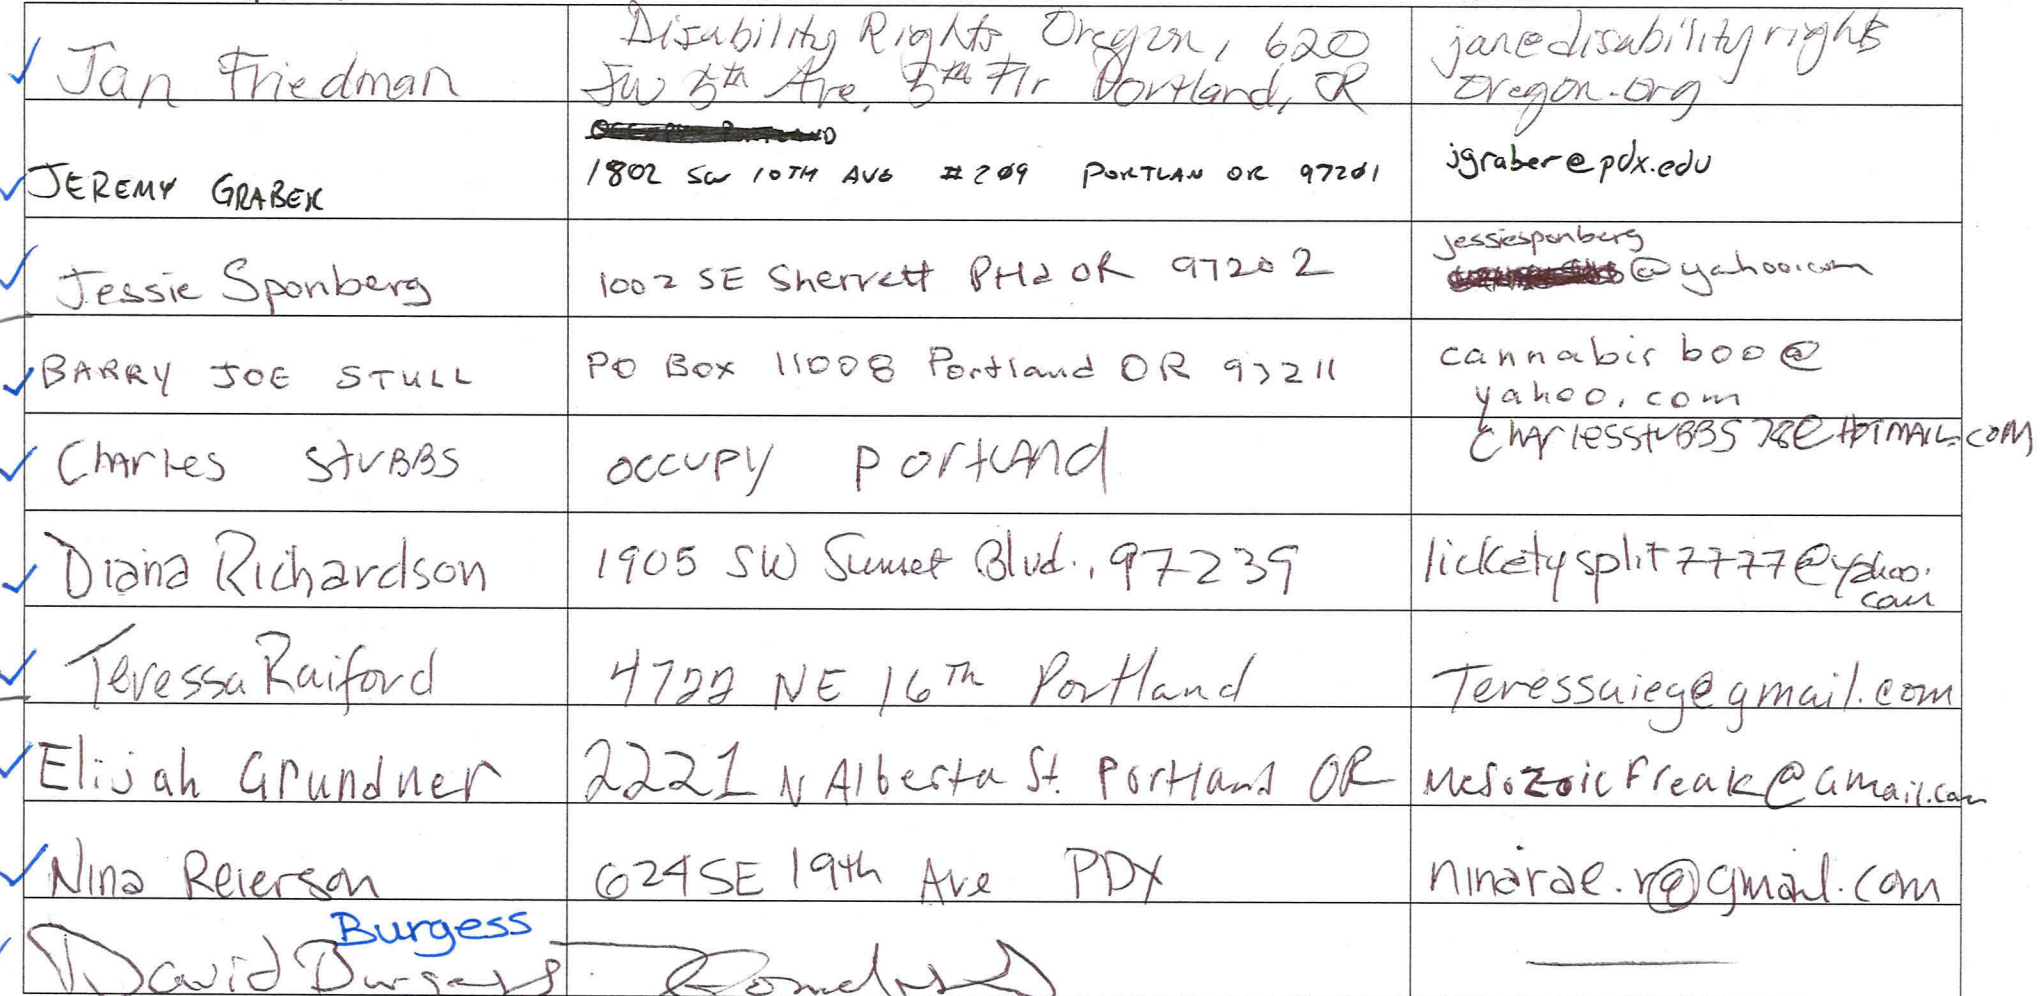 Jan Friedman
Disability Rights Oregon, 620
SW 5th Ave, 5th Flr Portland, OR
jan@disabilityrights
oregon.org
JEREMY GRABER
1802 SW 10TH AVE #209 PORTLAN OR 97201
jgraber@pdx.edu
Jessie Sponberg
1002 SE Sherrett Ptld OR 97202
jessiesponberg
@yahoo.com
BARRY JOE STULL
PO Box 11008 Portland OR 97211
cannabis boo@
yahoo.com
Charles Stubbs
occupy portland
Charlesstubbs78@HOTMAIL.COM
Diana Richardson
1905 SW Sunset Blvd., 97239
licketysplit7777@yahoo.
com
Teressa Raiford
4722 NE 16th Portland
Teressaieg@gmail.com
Elijah Grundner
2221 N Alberta St. Portland OR
MesozoicFreak@Gmail.com
Nina Reierson
624 SE 19th Ave PDX
ninarae.r@gmail.com
Burgess
David Burgess